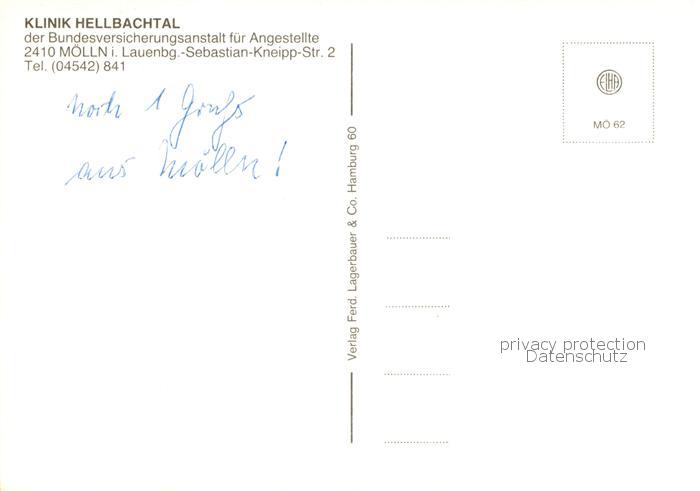 KLINIK HELLBACHTAL
der Bundesversicherungsanstalt für Angestellte
2410 MÖLLN i. Lauenbg.-Sebastian-Kneipp-Str. 2
Tel. (04542) 841
noch 1 Gruß
aus Mölln!
Verlag Ferd. Lagerbauer & Co. Hamburg 60
ELHA
MÖ 62
privacy protection
Datenschutz